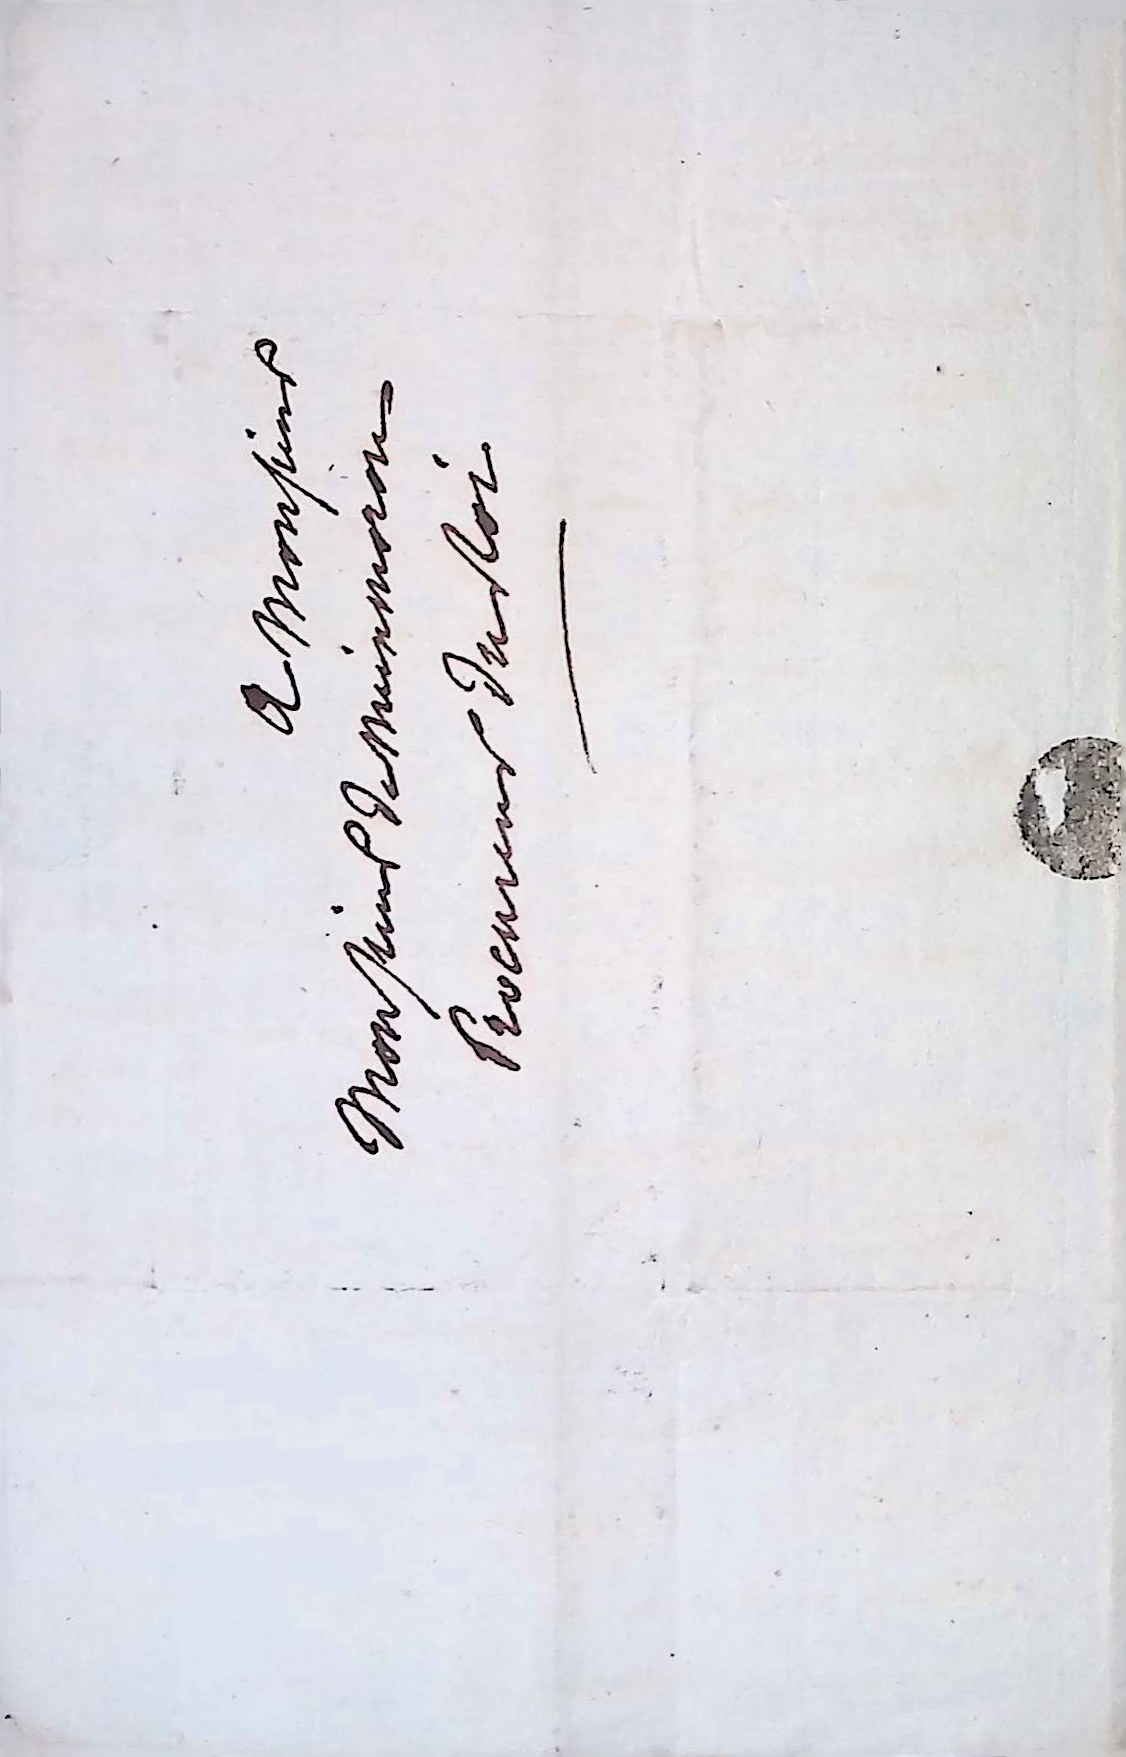 A Monsieur
Monsieur De Mirimonon
Procureur Du Roi